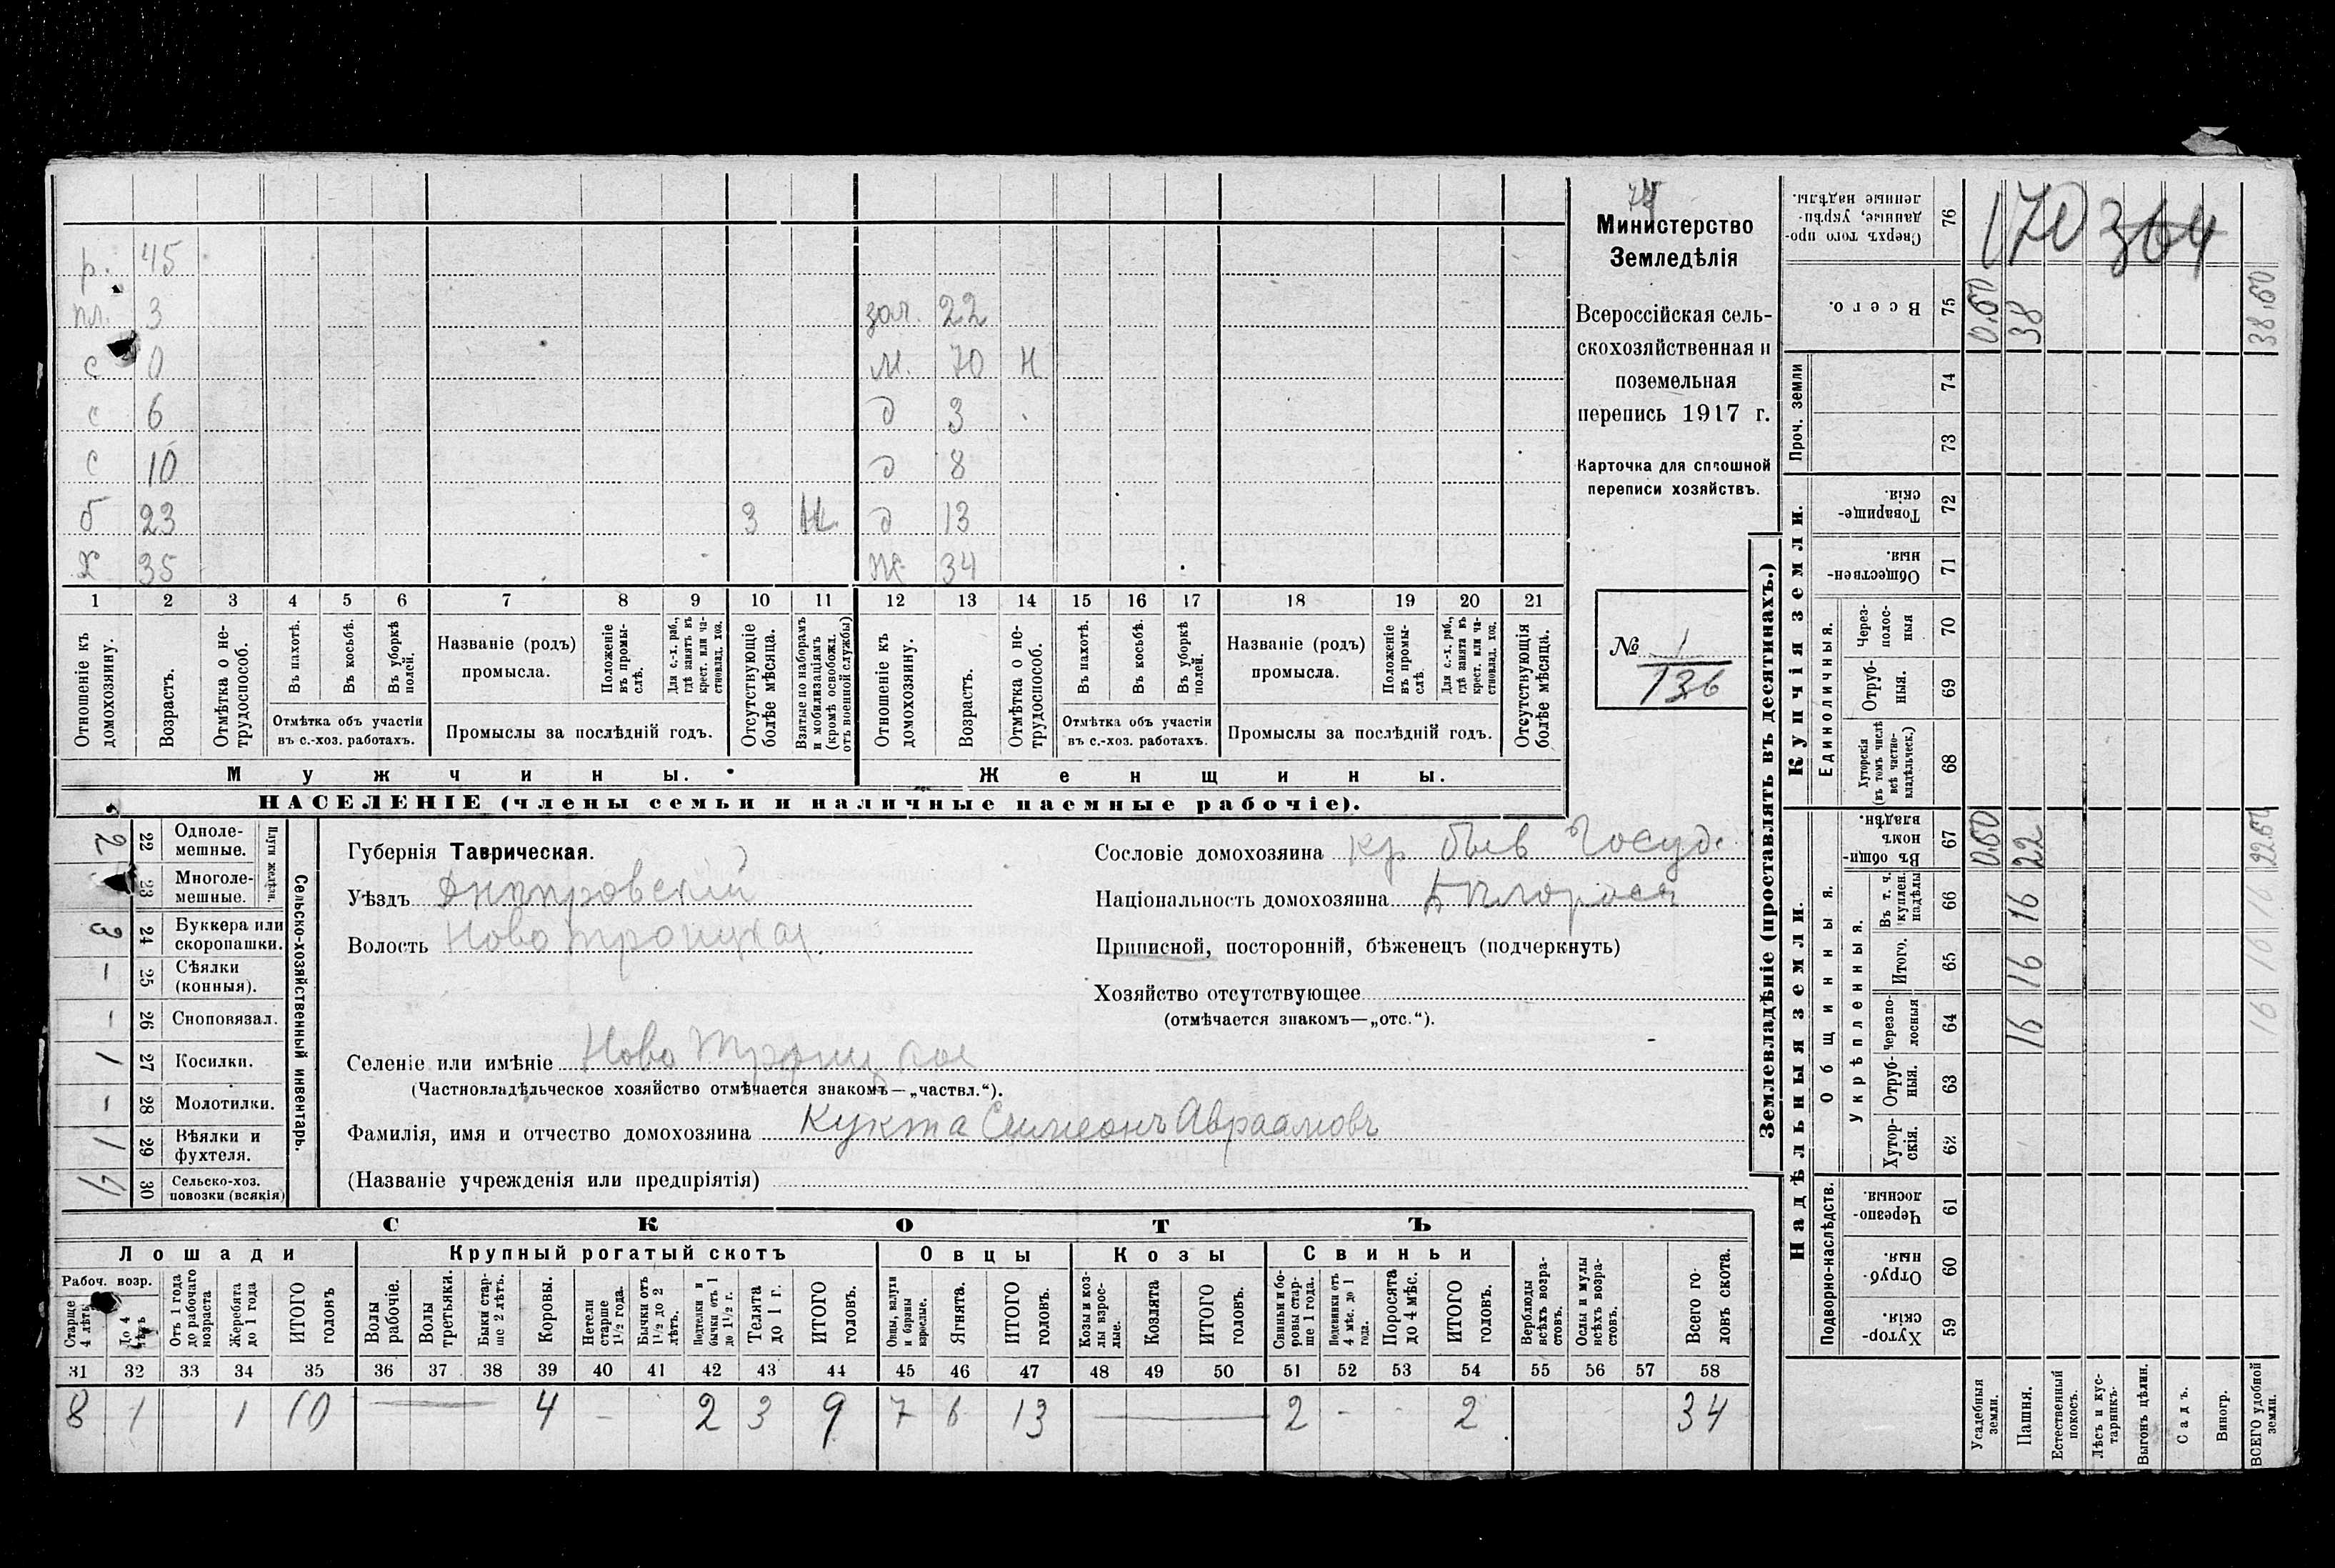 р. 45
пл. 3 зол. 22
с 0 м. 70 Н
с 6 д 3
с 10 д 8
б 23 3 д 13
х 35 ж 34
1 2 3 4 5 6 7 8 9 10 11 12 13 14 15 16 17 18 19 20 21
Отношеніе къ домохозяину.
Возрастъ.
Отмѣтка о не-трудоспособ.
Въ пахотѣ.
Въ косьбѣ.
Въ уборкѣ полей.
Отмѣтка объ участіи въ с.-хоз. работахъ.
Названіе (родъ) промысла.
Положеніе въ промы-слѣ.
Для с.-х. раб., гдѣ занятъ въ крест. или ча-стновлад. хоз.
Промыслы за послѣдній годъ.
Отсутствующіе болѣе мѣсяца.
Взятые по наборамъ и мобилизаціямъ (кромѣ освобожд. отъ военной службы)
Отношеніе къ домохозяину.
Возрастъ.
Отмѣтка о не-трудоспособ.
Въ пахотѣ.
Въ косьбѣ.
Въ уборкѣ полей.
Отмѣтка объ участіи въ с.-хоз. работахъ.
Названіе (родъ) промысла.
Положеніе въ промы-слѣ.
Для с.-х. раб., гдѣ занята въ крест. или ча-стновлад. хоз.
Промыслы за послѣдній годъ.
Отсутствующія болѣе мѣсяца.
Мужчины.
Женщины.
НАСЕЛЕНІЕ (члены семьи и наличные наемные рабочіе).
Министерство
Земледѣлія
Всероссійская сель-
скохозяйственная и
поземельная
перепись 1917 г.
Карточка для сплошной
переписи хозяйствъ.
№ 1
136
2 22 Одноле-мешные.
23 Многоле-мешные.
Плуги желѣзн.
3 24 Буккера или скоропашки.
– 25 Сѣялки (конныя).
– 26 Сноповязал.
1 27 Косилки.
– 28 Молотилки.
1 29 Вѣялки и фухтеля.
30 Сельско-хоз. повозки (всякія)
Сельско-хозяйственный инвентарь.
Губернія Таврическая.
Уѣздъ Днѣпровскій
Волость Ново Троицкая
Селеніе или имѣніе Ново Троицкое
(Частновладѣльческое хозяйство отмѣчается знакомъ—„частвл.“).
Фамилія, имя и отчество домохозяина Кукта Симеонъ Авраамовъ
(Названіе учрежденія или предпріятія)
Сословіе домохозяина кр быв Госуд.
Національность домохозяина Бѣлоросс
Приписной, посторонній, бѣженецъ (подчеркнуть)
Хозяйство отсутствующее
(отмѣчается знакомъ—„отс.“).
СКОТЪ
Лошади
Крупный рогатый скотъ
Овцы
Козы
Свиньи
Рабоч. возр.
Старше 4 лѣтъ
До 4 лѣтъ
Отъ 1 года до рабочаго возраста
Жеребята до 1 года
ИТОГО головъ
Волы рабочіе.
Волы третьяки.
Быки стар-ше 2 лѣтъ.
Коровы.
Нетели старше 1½ года.
Бычки отъ 1½ до 2 лѣтъ.
Подтелки и бычки отъ 1 до 1½ г.
Телята до 1 г.
ИТОГО головъ.
Овцы, валухи и бараны взрослые.
Ягнята.
ИТОГО головъ.
Козы и коз-лы взрос-лые.
Козлята
ИТОГО головъ.
Свиньи и бо-ровы стар-ше 1 года.
Подсвинки отъ 4 мѣс. до 1 года.
Поросята до 4 мѣс.
ИТОГО головъ.
Верблюды всѣхъ возра-стовъ.
Ослы и мулы всѣхъ возра-стовъ.
Всего го-ловъ скота.
31 32 33 34 35 36 37 38 39 40 41 42 43 44 45 46 47 48 49 50 51 52 53 54 55 56 57 58
8 1 1 10 — 4 – 2 3 9 7 6 13 — 2 – - 2 34
Землевладѣніе (проставлять въ десятинахъ.)
Купчія земли.
Надѣльныя земли.
Сверхъ того про-данные, укрѣп-ленные надѣлы. 76 170 364
Всего. 75 0.60 38 38.60
Проч. земли
74
73
Товарище-скія. 72
Обществен-ныя. 71
Единоличныя.
Через-полос-ныя 70
Отруб-ныя. 69
Хуторскія (въ томъ числѣ всѣ частно-владѣльческ.) 68
Общинныя.
Въ общин-номъ владѣн. 67 0.60 22 22.60
Укрѣпленныя.
Въ т. ч. куплен. надѣлы 66 16 16
Итого. 65 16 16
Черезпо-лосныя 64 16 16
Отруб-ныя. 63
Хутор-скія. 62
Подворно-наслѣдств.
Черезпо-лосныя. 61
Отруб-ныя. 60
Хутор-скія. 59
Усадебныя земли.
Пашня.
Естественный покосъ.
Лѣсъ и кус-тарникъ.
Выгонъ цѣлин.
Садъ.
Виногр.
ВСЕГО удобной земли.